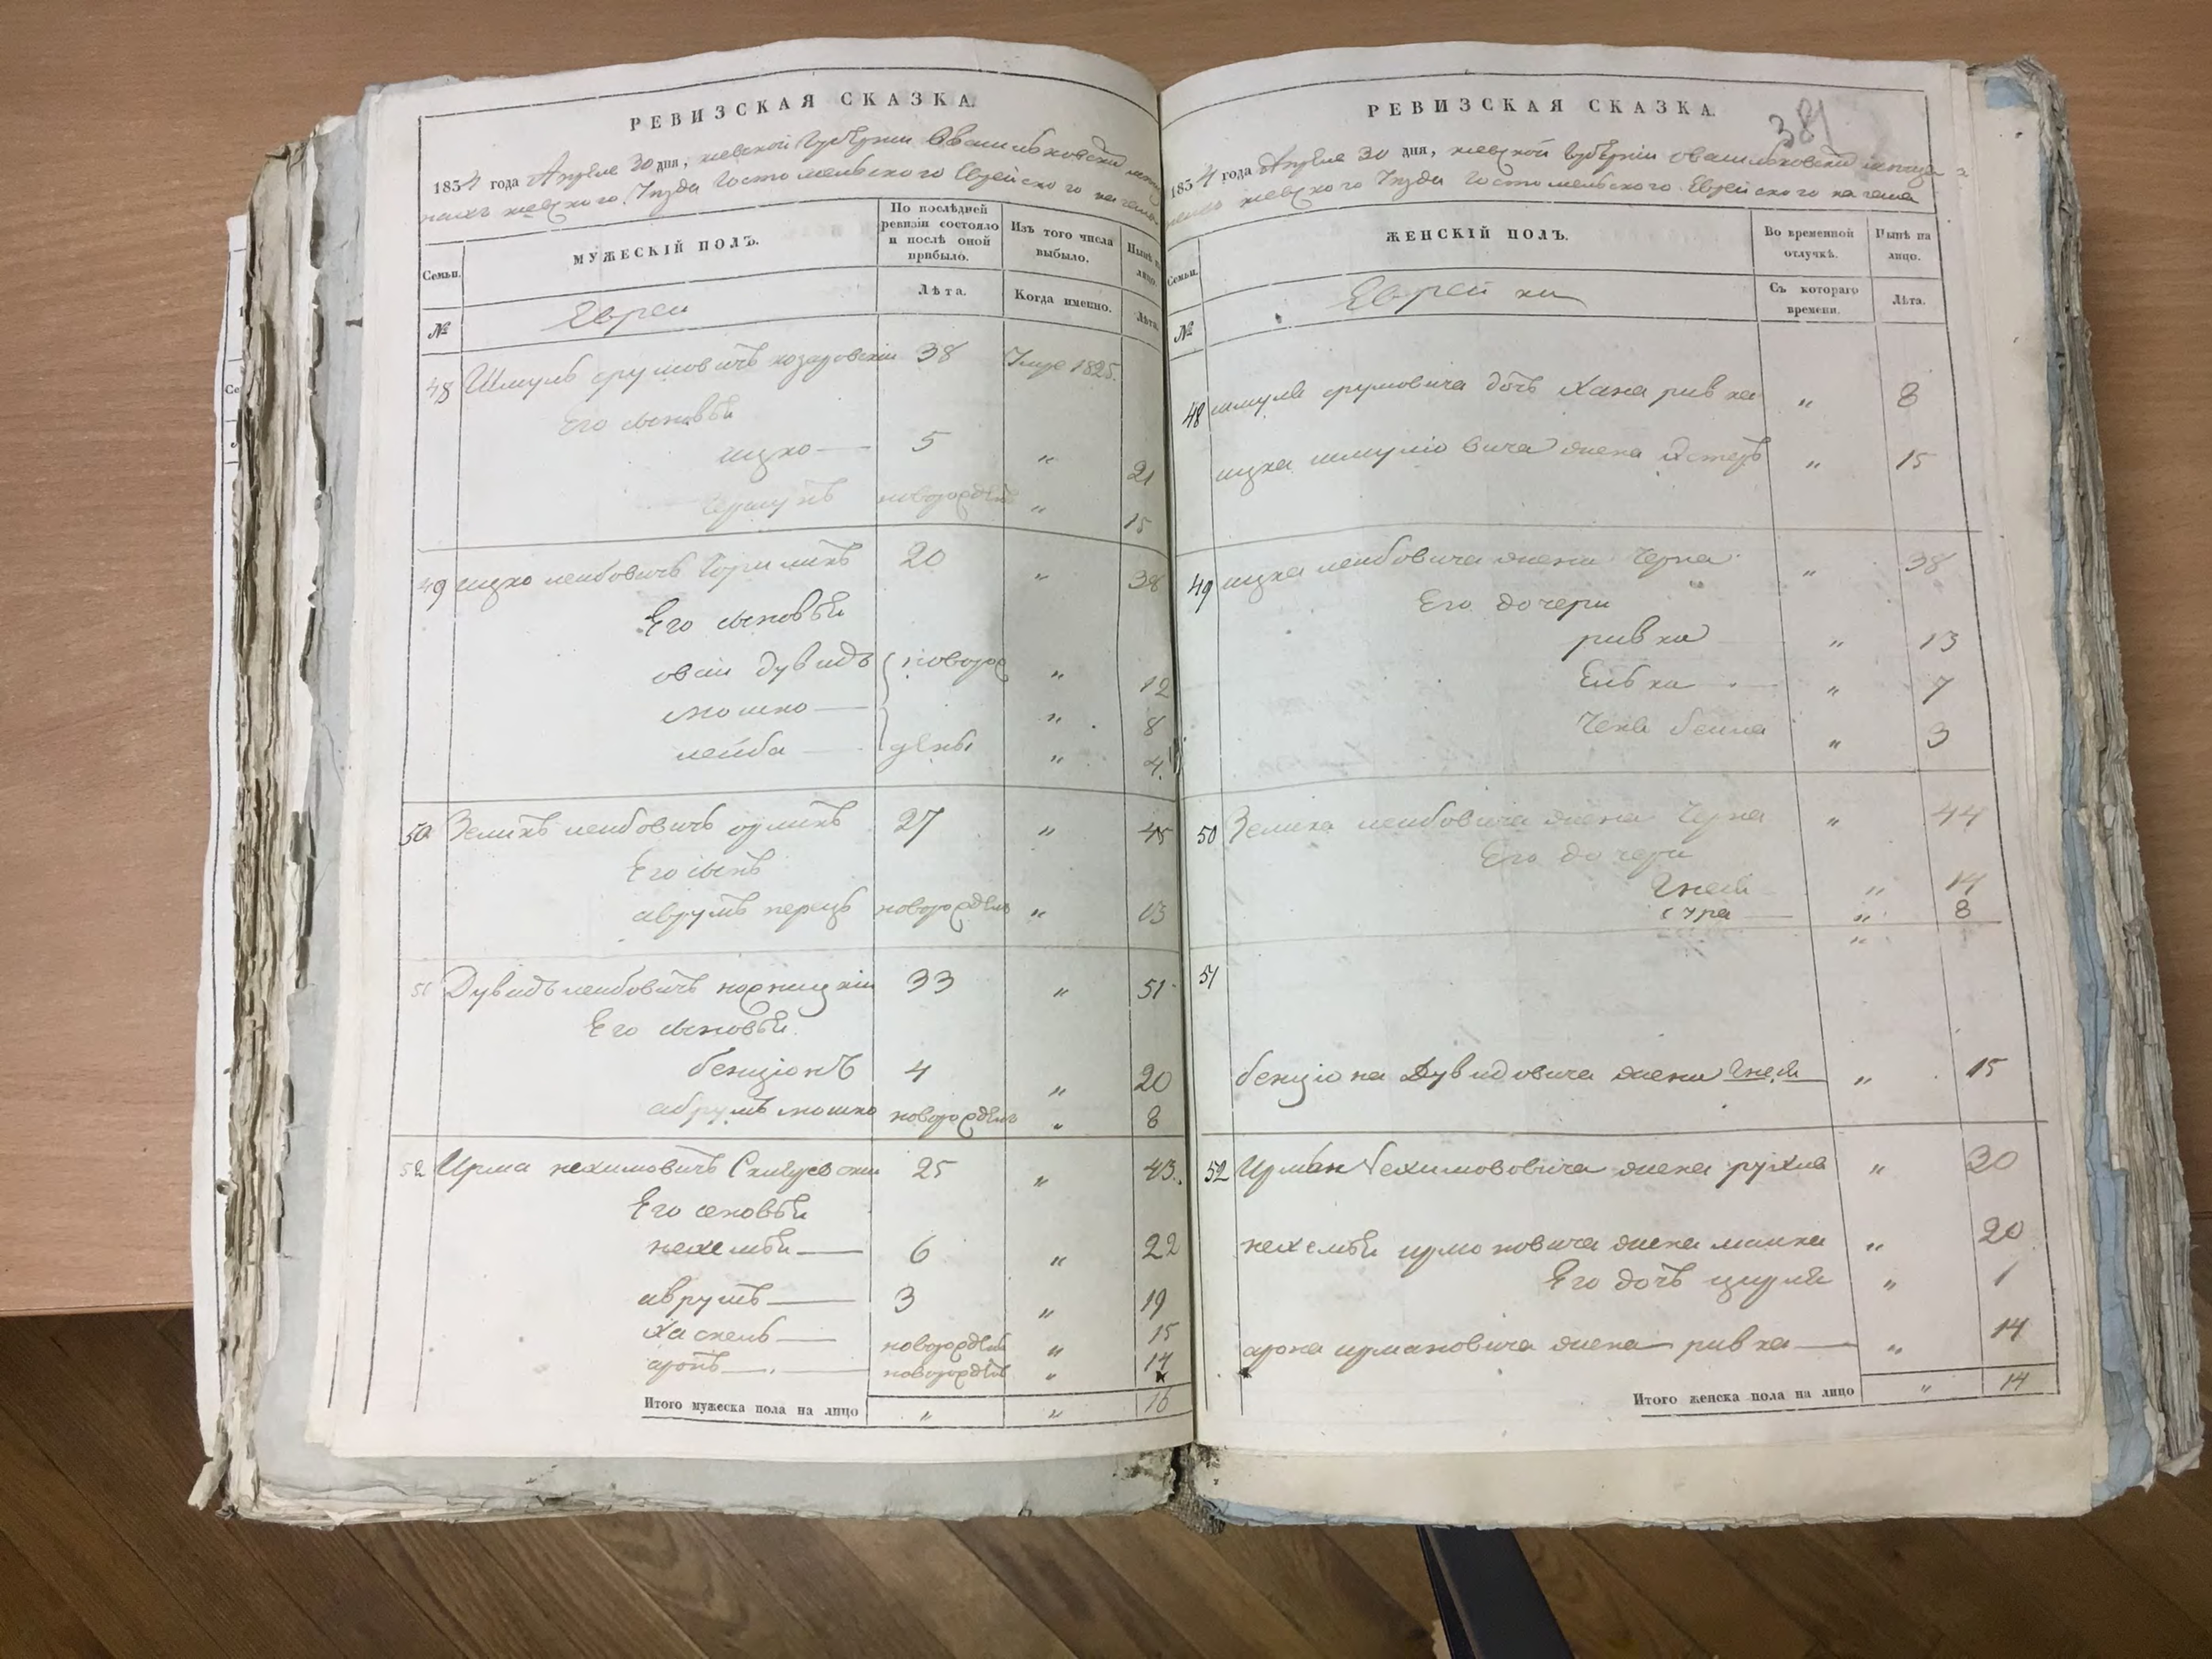 РЕВИЗСКАЯ СКАЗКА.
1834 года Апреля 30 дня, киевской Губернии
киевского Уезда Гостомельского Еврейского
Семьи.
МУЖЕСКІЙ ПОЛЪ.
По послѣдней ревизіи состояло и послѣ оной прибыло.
Изъ того числа выбыло.
Нынѣ на лицо.
№
Евреи
Лѣта.
Когда именно.
Лѣта.
48 Шмуль срумовичъ козаровскій 38 Умре 1825.
Его сыновьи
ицко — 5 „ 21
новорожден „ 15
49 ицко лейбовичъ 20 „ 38
Его сыновьи
овсии дувидъ новорож „ 12
мошко — „ 8
лейба — дены „ 4
50 Зеликъ лейбовичъ 27 „ 45
Его сынъ
аврумъ перецъ новорожден „ 13
51 Дувидъ лейбовичъ 33 „ 51
Его сыновьи
бенціонъ 4 „ 20
абрумъ мошко новорожден „ 8
52 Ирма нехимовичъ 25 „ 43
Его сеновьи
нехемьи — 6 „ 22
аврумъ — 3 „ 19
Хаскель — новорожден „ 15
аронъ — новорожден „ 14
Итого мужеска пола на лицо „ „ 16
РЕВИЗСКАЯ СКАЗКА.
381
1834 года Апреля 30 дня, киевской Губерніи
киевского Уезда Гостомельского Еврейского
Семьи.
ЖЕНСКІЙ ПОЛЪ.
Во временной отлучкѣ.
Нынѣ на лицо.
№
Еврейки
Съ котораго времени.
Лѣта.
48 шмуля срумовича дочь Хана ривка „ 8
ицка шмуліовича жена Эстеръ „ 15
49 ицка лейбовича жена Черна „ 38
Его дочери
ривка — „ 13
Елька — „ 7
бейла „ 3
50 Зелика лейбовича жена Черна „ 44
Его дочери
Гнеся — „ 14
сура — „ 8
„
51
бенціона Дувидовича жена Гнеся „ 15
52 нехимововича жена рухля „ 30
нехемьи ирмоновича жена малка „ 20
Его дочь цирля „ 1
арона ирмановича жена — ривка — „ 14
Итого женска пола на лицо „ 14